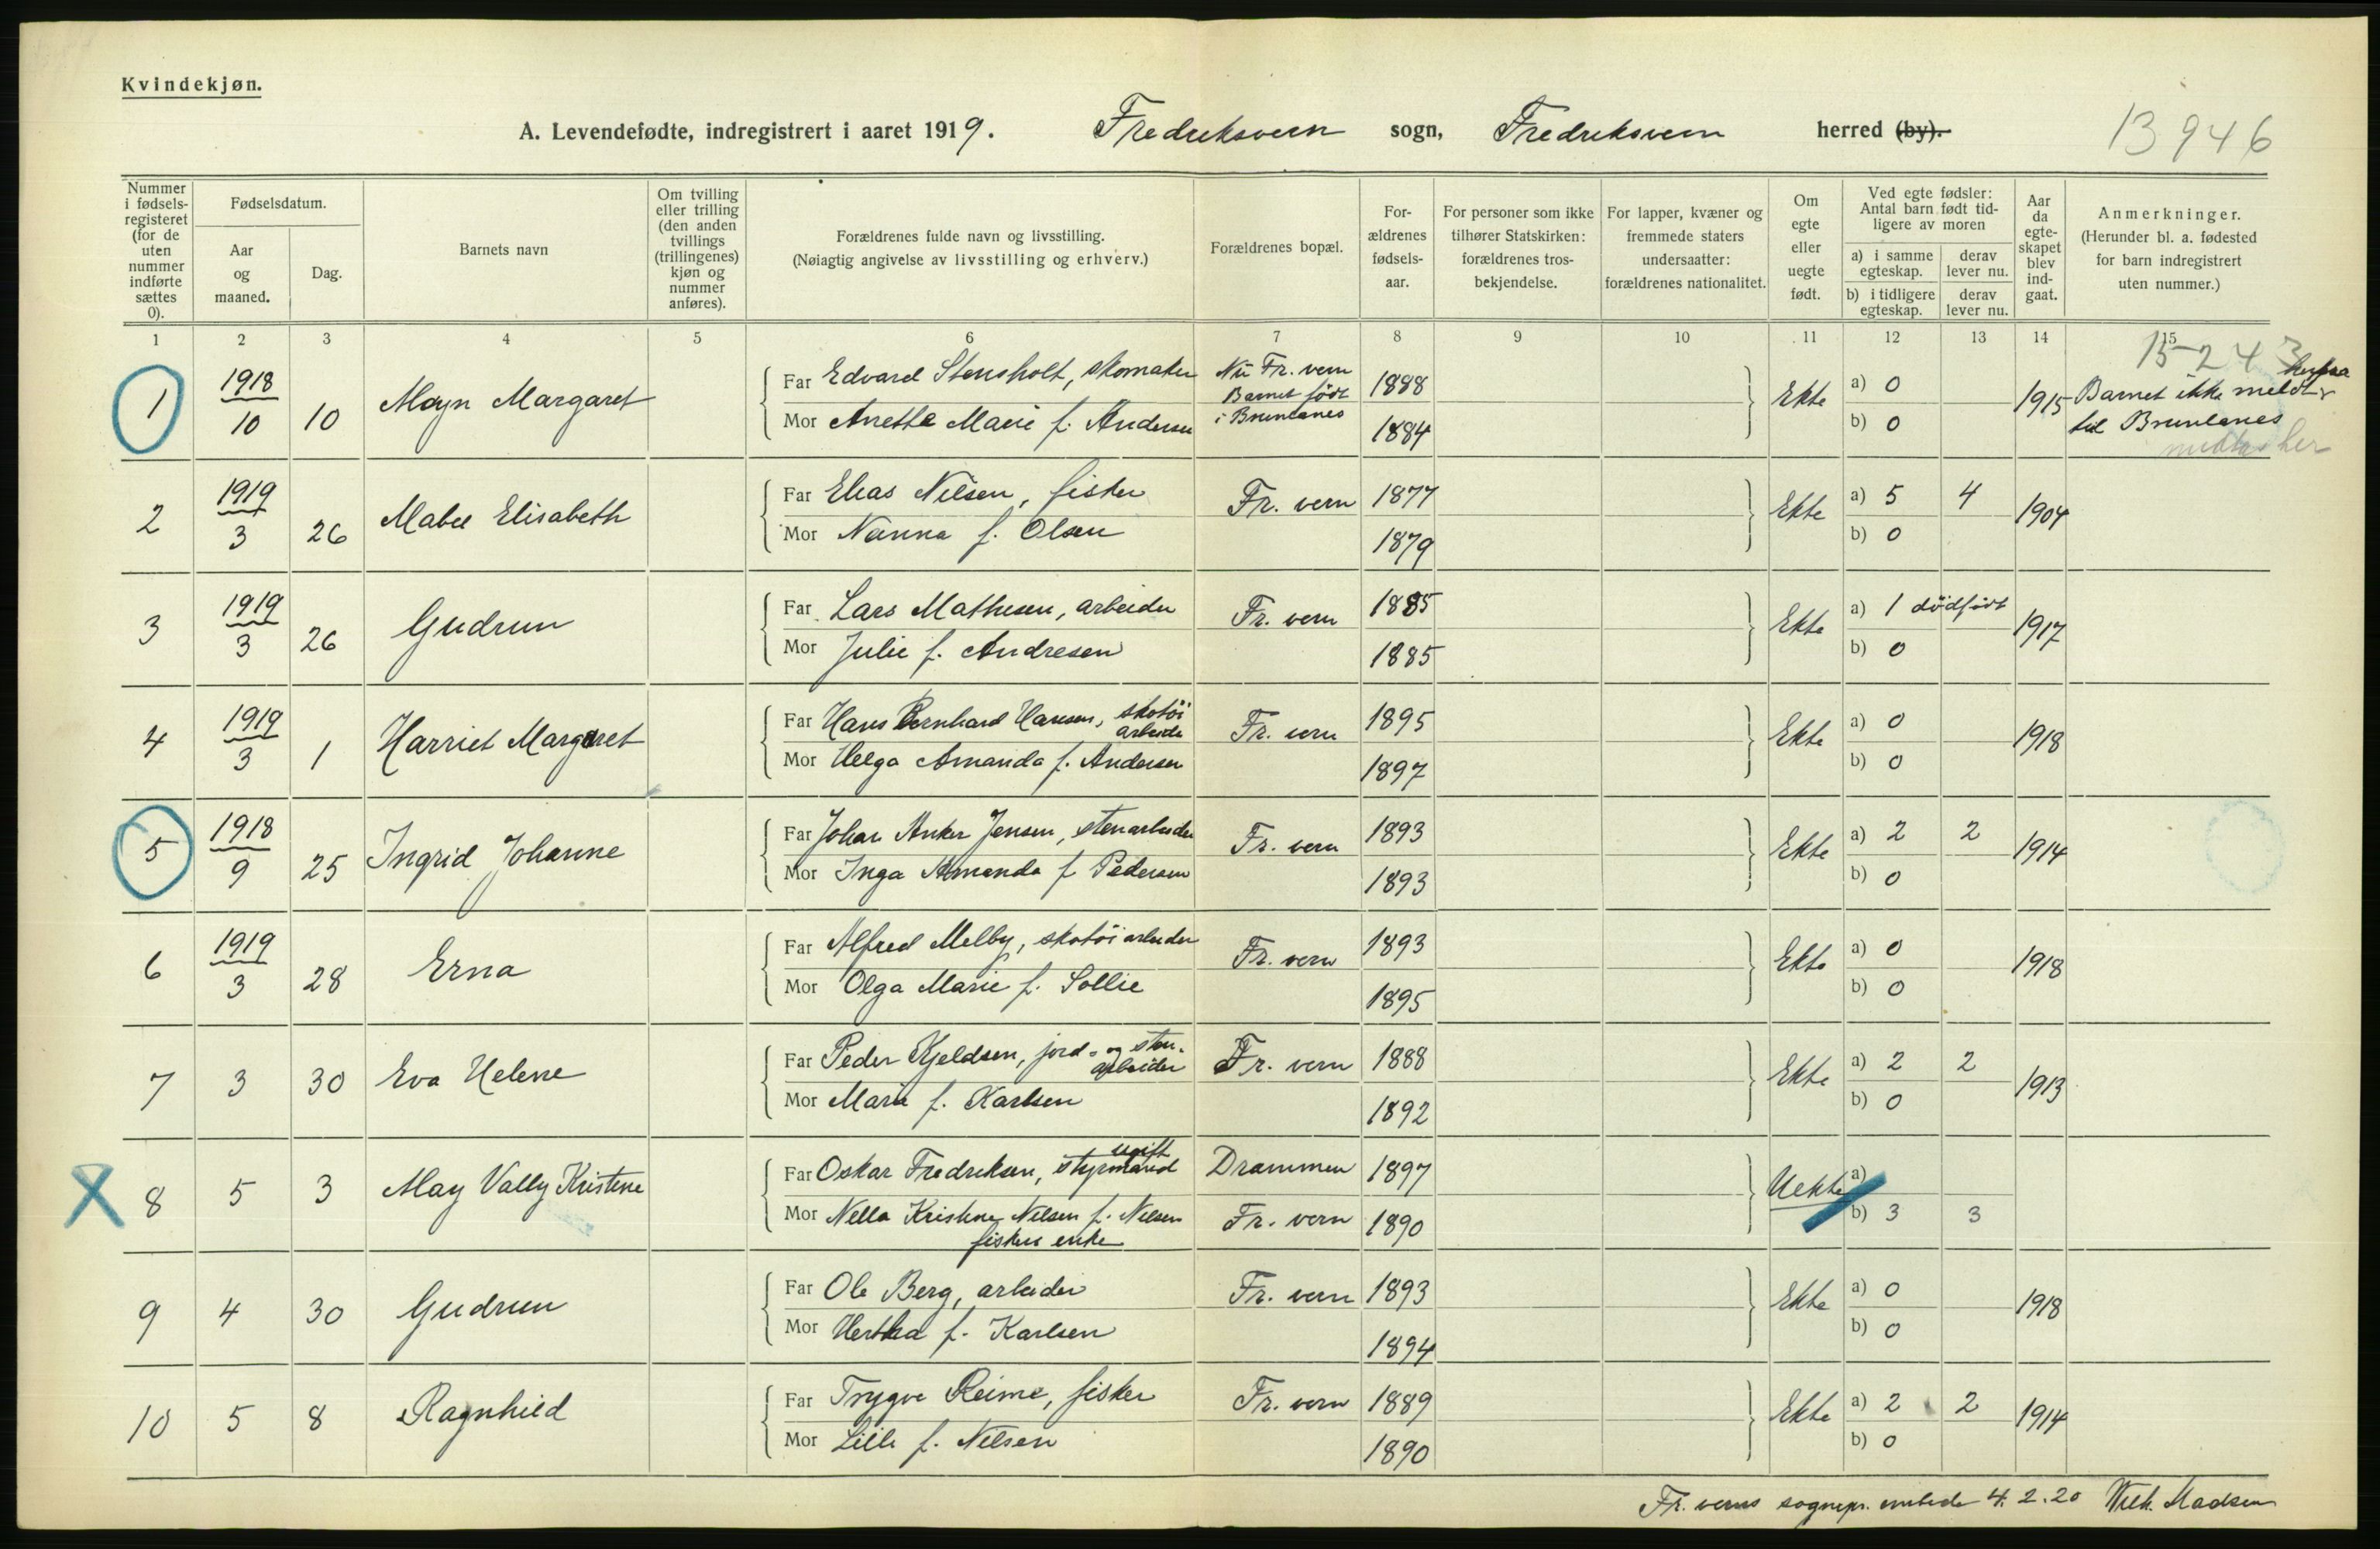 Kvindekjøn.
A. Levendefødte, indregistrert i aaret 1919. Fredriksvern sogn, Fredriksvern herred (by). 13946
Nummer i fødselsregisteret (for de uten nummer indførte sættes 0).
Fødselsdatum.
Aar og maaned.
Dag.
Barnets navn
Om tvilling eller trilling (den anden tvillings (trillingenes) kjøn og nummer anføres).
Forældrenes fulde navn og livsstilling.
(Nøiagtig angivelse av livsstilling og erhverv.)
Forældrenes bopæl.
Forældrenes fødselsaar.
For personer som ikke tilhører Statskirken: forældrenes trosbekjendelse.
For lapper, kvæner og fremmede staters undersaatter: forældrenes nationalitet.
Om egte eller uegte født.
Ved egte fødsler: Antal barn født tidligere av moren
a) i samme egteskap. derav lever nu.
b) i tidligere egteskap. derav lever nu.
Aar da egteskapet blev indgaat.
Anmerkninger.
(Herunder bl. a. fødested for barn indregistrert uten nummer.)
1 2 3 4 5 6 7 8 9 10 11 12 13 14 15
1524
1 1918/10 10 Mayn Margaret Far Edvard Stensholt, skomaker Nu Fr. vern Barnet født i Brunlanes 1888 Ekte a) 0 1915 Barnet ikke meldt
Mor Anette Marie f. Andersen 1884 b) 0 til Brunlanes
medtas her
2 1919/3 26 Mabel Elisabeth Far Elias Nilsen, fisker Fr. vern 1877 Ekte a) 5 4 1904
Mor Nanna f. Olsen 1879 b) 0
3 1919/3 26 Gudrun Far Lars Mathisen, arbeider Fr. vern 1885 Ekte a) 1 dødfødt 1917
Mor Julie f. Andresen 1885 b) 0
4 1919/3 1 Harriet Margaret Far Hans Bernhard Hansen, skotøi arbeider Fr. vern 1895 Ekte a) 0 1918
Mor Helga Amanda f. Andersen 1897 b) 0
5 1918/9 25 Ingrid Johanne Far Johan Anker Jensen, stenarbeider Fr. vern 1893 Ekte a) 2 2 1914
Mor Inga Amanda f Pedersen 1893 b) 0
6 1919/3 28 Erna Far Alfred Melby, skotøiarbeider Fr. vern 1893 Ekte a) 0 1918
Mor Olga Marie f. Sollie 1895 b) 0
7 3 30 Eva Helene Far Peder Kjeldsen, jord- og sten-arbeider Fr. vern 1888 Ekte a) 2 2 1913
Mor Maria f. Karlsen 1892 b) 0
X 8 5 3 May Vally Kristene Far Oskar Fredriksen, ugift styrmand Drammen 1897 Uekte a)
Mor Nella Kristine Nilsen f. Nilsen Fr. vern 1890 b) 3 3
fiskers enke
9 4 30 Gudrun Far Ole Berg, arbeider Fr. vern 1893 Ekte a) 0 1918
Mor Hertha f. Karlsen 1894 b) 0
10 5 8 Ragnhild Far Trygve Reime, fisker Fr. vern 1889 Ekte a) 2 2 1914
Mor Lilli f. Nilsen 1890 b) 0
Fr. verns sognepr. embede 4.2.20 Wilh. Madsen